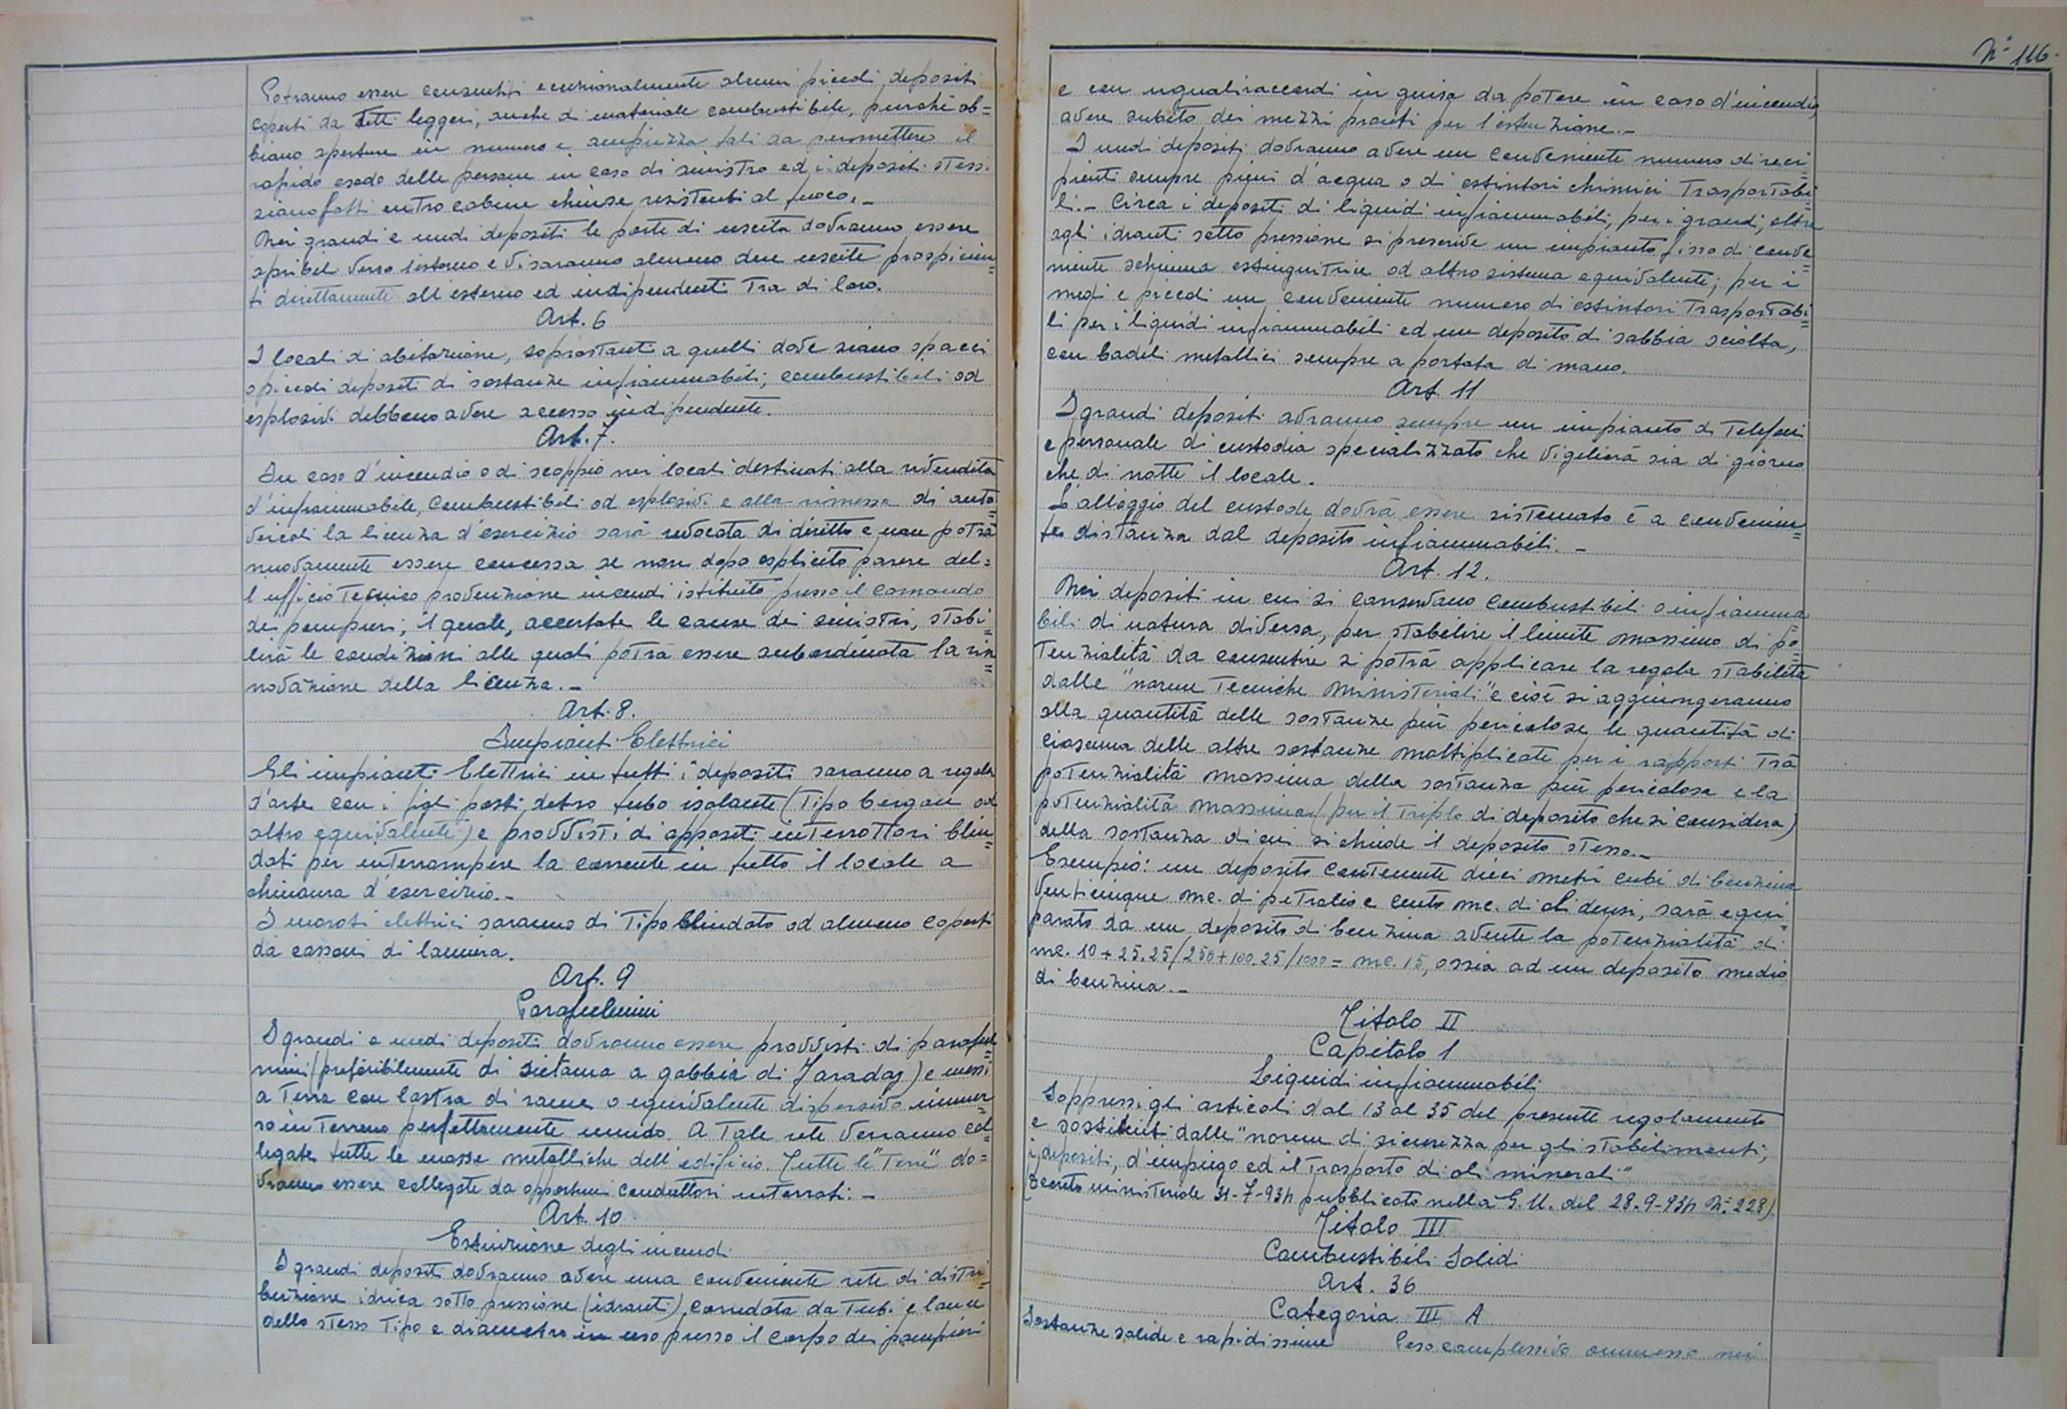 Potranno essere consentiti eccezionalmente alcuni piccoli depositi
coperti da tetti leggeri, anche di materiale combustibile, purchè ab=
biano aperture in numero e ampiezza tali da permettere il
rapido esodo delle persone in caso di sinistro ed i depositi stessi
siano fatti entro cabine chiuse resistenti al fuoco._
Nei grandi e medi depositi le porte di uscita dovranno essere
apribili verso l'esterno e vi saranno almeno due uscite prospicien=
ti direttamente all'esterno ed indipendenti tra di loro.
Art. 6
I locali di abitazione, soprastanti a quelli dove siano spacci
o piccoli depositi di sostanze infiammabili, combustibili od
esplosivi debbono avere accesso indipendente.
Art. 7.
In caso d'incendio o di scoppio nei locali destinati alla rivendita
d'infiammabile, combustibili od esplosivi e alla rimessa di auto=
veicoli la licenza d'esercizio sarà revocata di diritto e non potrà
nuovamente essere concessa se non dopo esplicito parere del=
l'ufficio Tecnico prevenzione incendi istituito presso il comando
dei pompieri; il quale, accertate le cause dei sinistri, stabi=
lirà le condizioni alle quali potrà essere subordinata la rin=
novazione della licenza._
Art. 8.
Impianti Elettrici
Gli impianti Elettrici in tutti i depositi saranno a regola
d'arte con i fili posti detro tubo isolante (Tipo bergan od
altro equivalente) e provvisti di appositi interrottori blin=
dati per interrompere la corrente in tutto il locale a
chiusura d'esercizio._
I motori elettrici saranno di Tipo blindato od almeno coperti
da cassoni di lamiera.
Art. 9
Parafulmini
I grandi e medi depositi dovranno essere provvisti di paraful=
mini (preferibilmente di sistema a gabbia di Faraday) e messi
a Terra con lastra di rame o equivalente dispersivo immer=
so in Terreno perfettamente umido. A Tale rete verranno col=
legate tutte le masse metalliche dell'edificio. Tutte le "Terre" do=
vranno essere collegate da opportuni conduttori interrati:_
Art. 10
Estinzione degli incendi
I grandi depositi dovranno avere una conveniente rete di distri=
buzione idrica sotto pressione (idranti), corredata da Tubi e lance
dello stesso Tipo e diametro in uso presso il corpo dei pompieri
N° 116.
e con uguali raccordi in guisa da potere in caso d'incendio,
avere subito dei mezzi pronti per l'estenzione._
I medi depositi dovranno avere un conveniente numero di reci=
pienti sempre pieni d'acqua o di estintori chimici Trasportabi=
li._ Circa i depositi di liquidi infiammabili, per i grandi, oltre
agli idranti sotto pressione si prescrive un impianto fisso di conve=
niente schiuma estinguitrice od altro sistema equivalente; per i
medi e piccoli un conveniente numero di estintori Trasportabi=
li per i liquidi infiammabili ed un deposito di sabbia sciolta,
con badili metallici sempre a portata di mano.
Art. 11
I grandi depositi avranno sempre un impianto di Telefoni
e personale di custodia specializzato che vigilerà sia di giorno
che di notte il locale.
L'alloggio del custode dovrà essere sistemato è a convenien=
te distanza dal deposito infiammabili._
Art. 12.
Nei depositi in cui si conservano combustibili o infiamma
bili di natura diversa, per stabilire il limite massimo di po=
tenzialità da consentire si potrà applicare la regola stabilita
dalle "norme Tecniche Ministeriali" e cioè si aggiungeranno
alla quantità delle sostanze più pericolose le quantità di
ciascuna delle altre sostanze moltiplicate per i rapporti Trà
potenzialità massima della sostanza più pericolosa e la
potenzialità massima (per il Triplo di deposito che si considera)
della sostanza di cui si chiede il deposito stesso._
Esempio: un deposito contenente dieci metri cubi di benzina
venticinque mc. di petrolio e cento mc. di oli densi, sarà equi=
parato da un deposito di benzina avente la potenzialità di
mc. 10+25.25/250+100.25/1000= mc. 15, ossia ad un deposito medio
di benzina._
Titolo II
Capitolo 1
Liquidi infiammabili
Soppressi gli articoli dal 13 al 35 del presente regolamento
e sostituiti dalle "norme di sicurezza per gli stabilimenti,
i depositi, d'impiego ed il Trasporto di oli minerali"
(Decreto ministeriale 31-7-934 pubblicato nella G.U. del 28-9-934 N° 228)
Titolo III
Combustibili Solidi
Art. 36
Categoria III A
Sostanze solide e rapidissime Peso complessivo ammesso nei